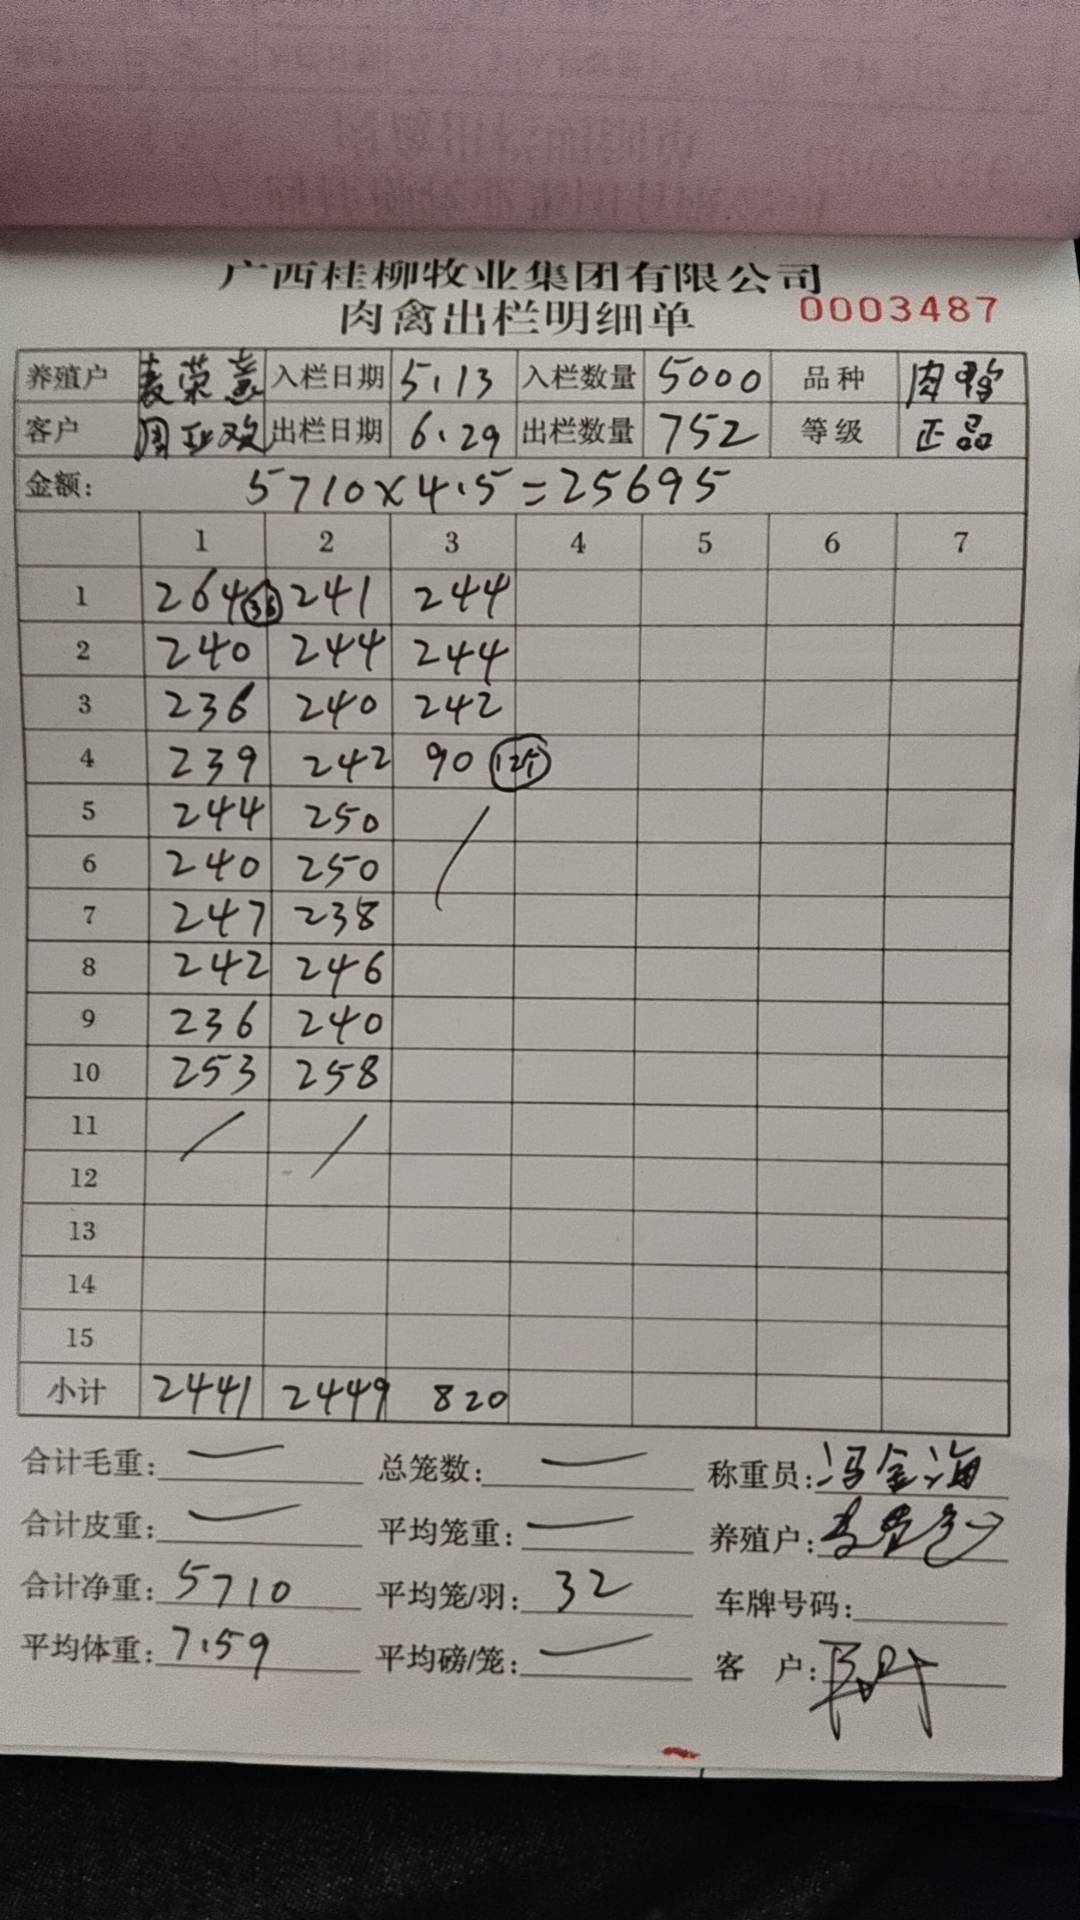 广西桂柳牧业集团有限公司
肉禽出栏明细单 0003487
养殖户 入栏日期 5.13 入栏数量 5000 品种 肉鸭
客户 周亚欢 出栏日期 6.29 出栏数量 752 等级 正品
金额: 5710×4.5=25695
1 2 3 4 5 6 7
1 264 36 241 244
2 240 244 244
3 236 240 242
4 239 242 90 12个
5 244 250
6 240 250
7 247 238
8 242 246
9 236 240
10 253 258
11
12
13
14
15
小计 2441 2449 820
合计毛重: 总笼数: 称重员: 冯金海
合计皮重: 平均笼重: 养殖户:
合计净重: 5710 平均笼/羽: 32 车牌号码:
平均体重: 7.59 平均磅/笼: 客 户: